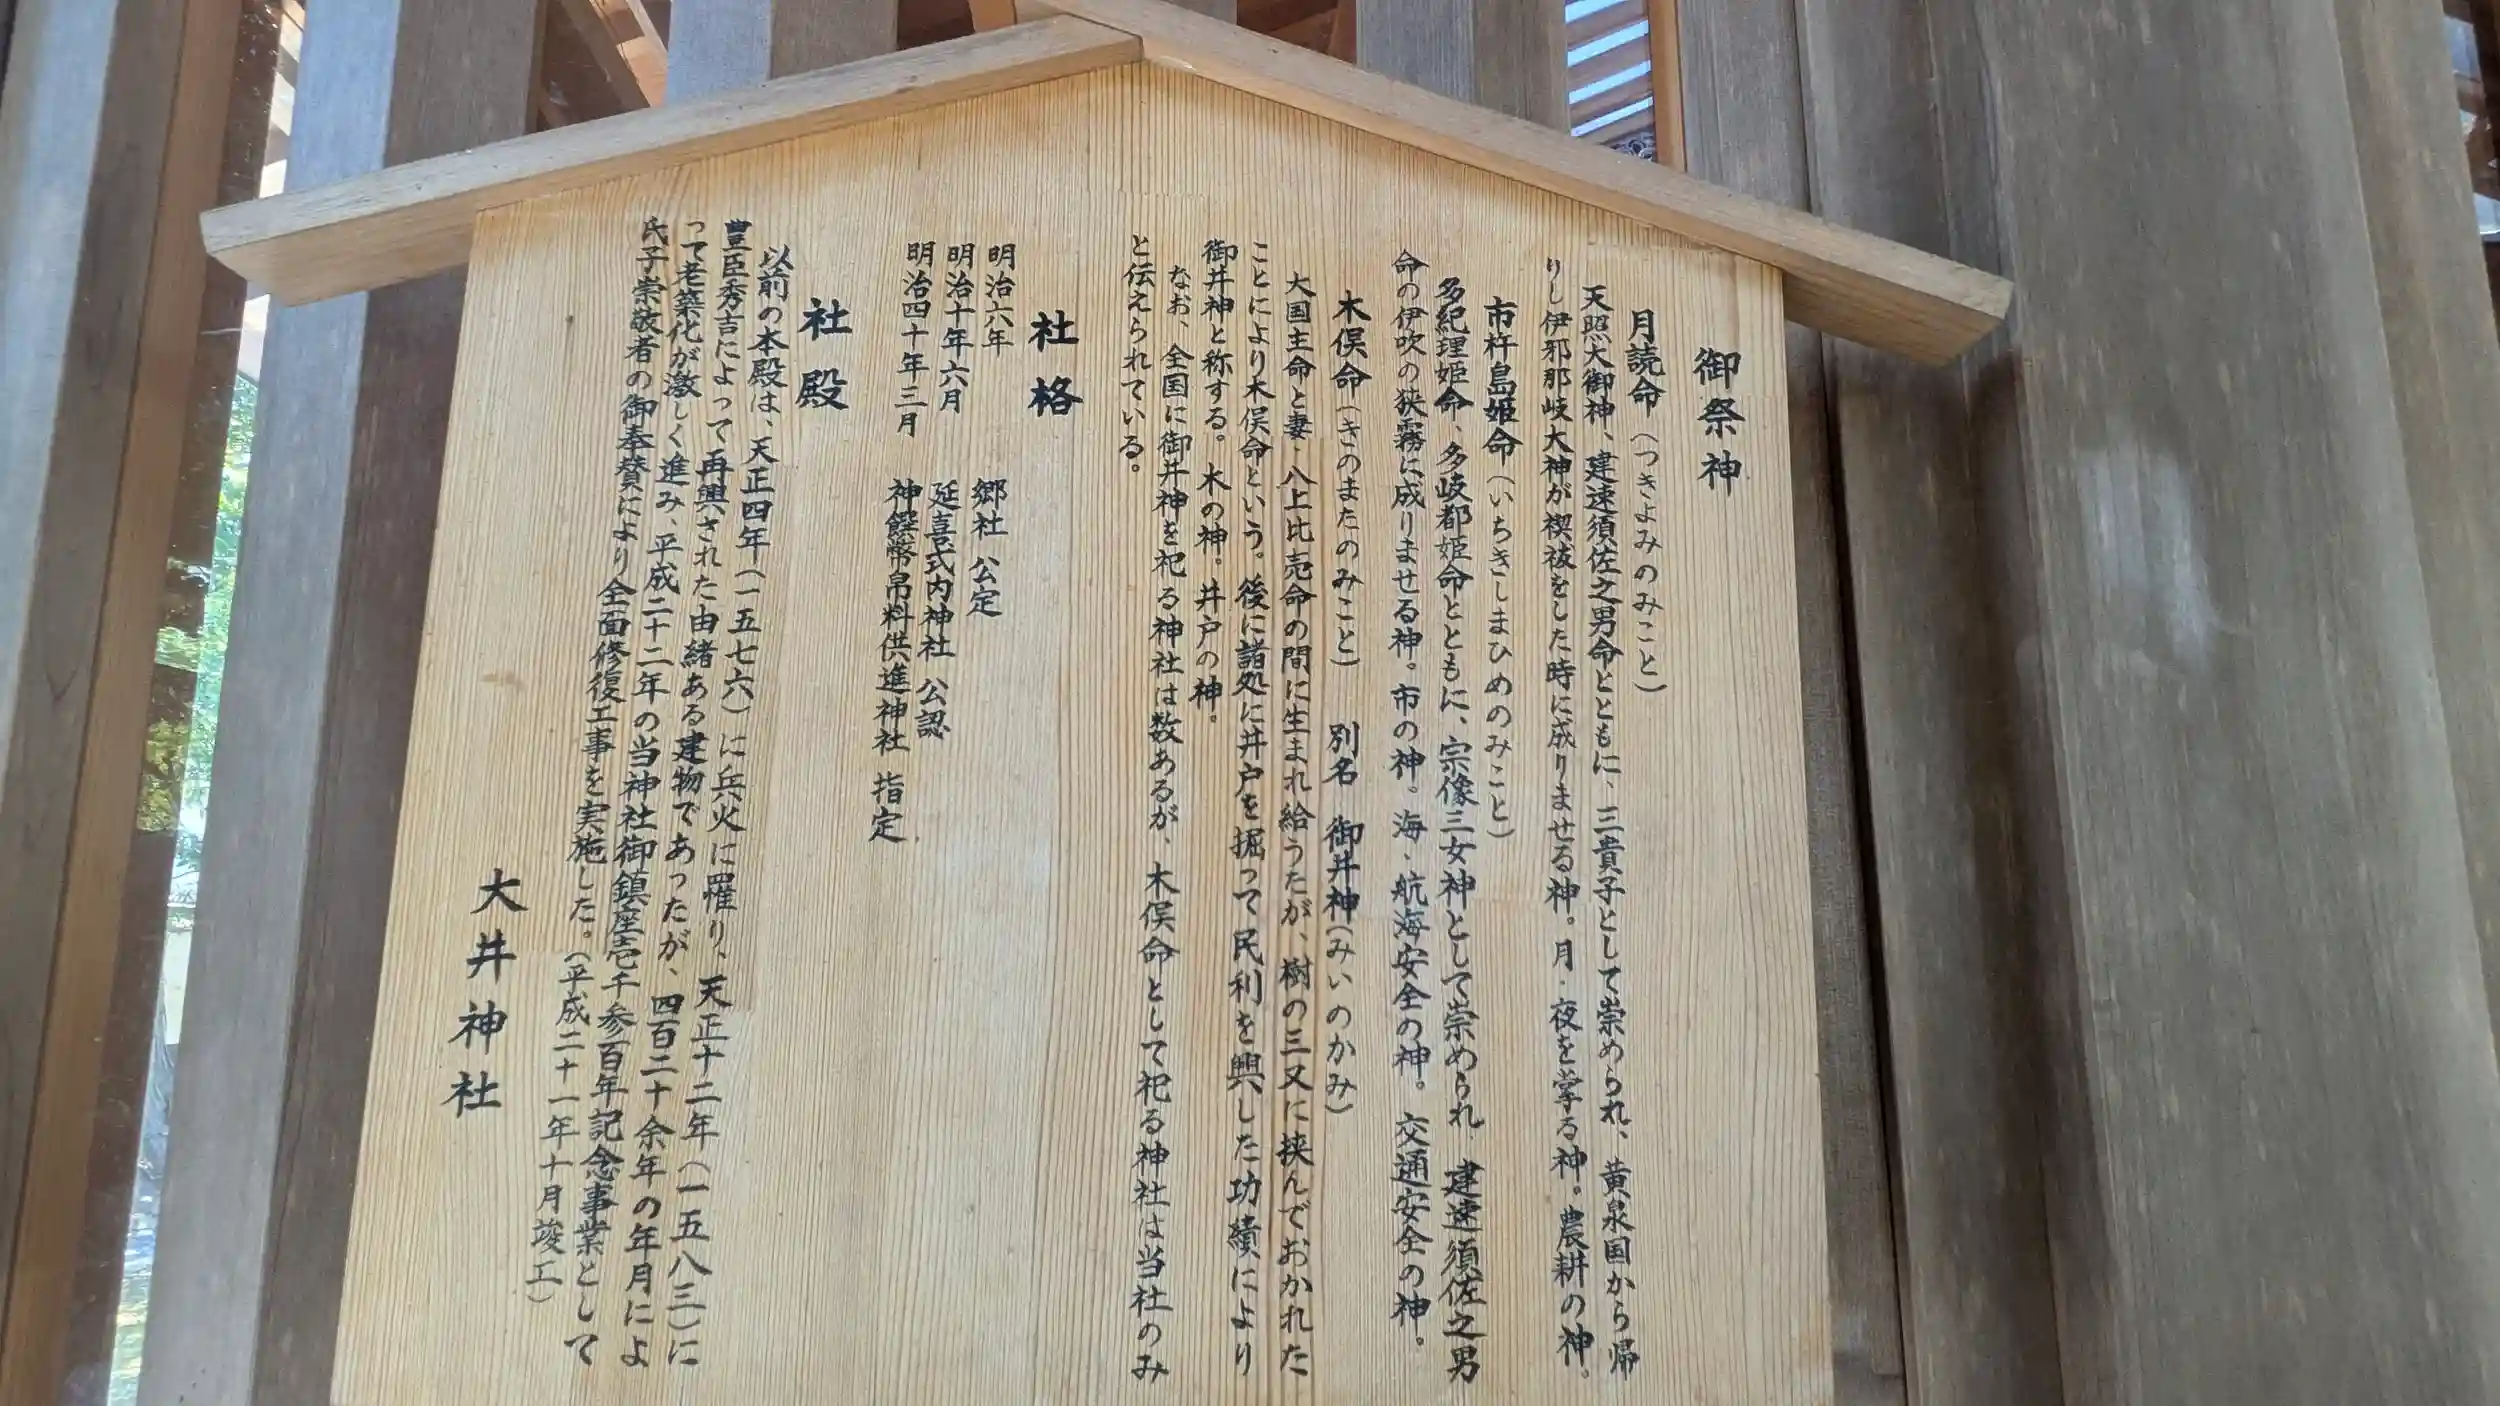 御祭神
月読命(つきよみのみこと)
天照大御神、建速須佐之男命とともに、三貴子として崇められ、黄泉国から帰
りし伊邪那岐大神が禊祓をした時に成りませる神。月・夜を掌る神。農耕の神。
市杵島姫命(いちきしまひめのみこと)
多紀理姫命、多岐都姫命とともに、宗像三女神として崇められ、建速須佐之男
命の伊吹の狭霧に成りませる神。市の神。海・航海安全の神。交通安全の神。
木俣命(きのまたのみこと) 別名 御井神(みいのかみ)
大国主命と妻・八上比売命の間に生まれ給うたが、樹の三又に挟んでおかれた
ことにより木俣命という。後に諸処に井戸を掘って民利を興した功績により
御井神と称する。木の神。井戸の神。
なお、全国に御井神を祀る神社は数あるが、木俣命として祀る神社は当社のみ
と伝えられている。
社格
明治六年 郷社 公定
明治十年六月 延喜式内神社 公認
明治四十年三月 神饌幣帛料供進神社 指定
社殿
以前の本殿は、天正四年(一五七六)に兵火に罹り、天正十二年(一五八三)に
豊臣秀吉によって再興された由緒ある建物であったが、四百二十余年の年月によ
って老築化が激しく進み、平成二十二年の当神社御鎮座壱千参百年記念事業として
氏子崇敬者の御奉賛により全面修復工事を実施した。(平成二十一年十月竣工)
大井神社